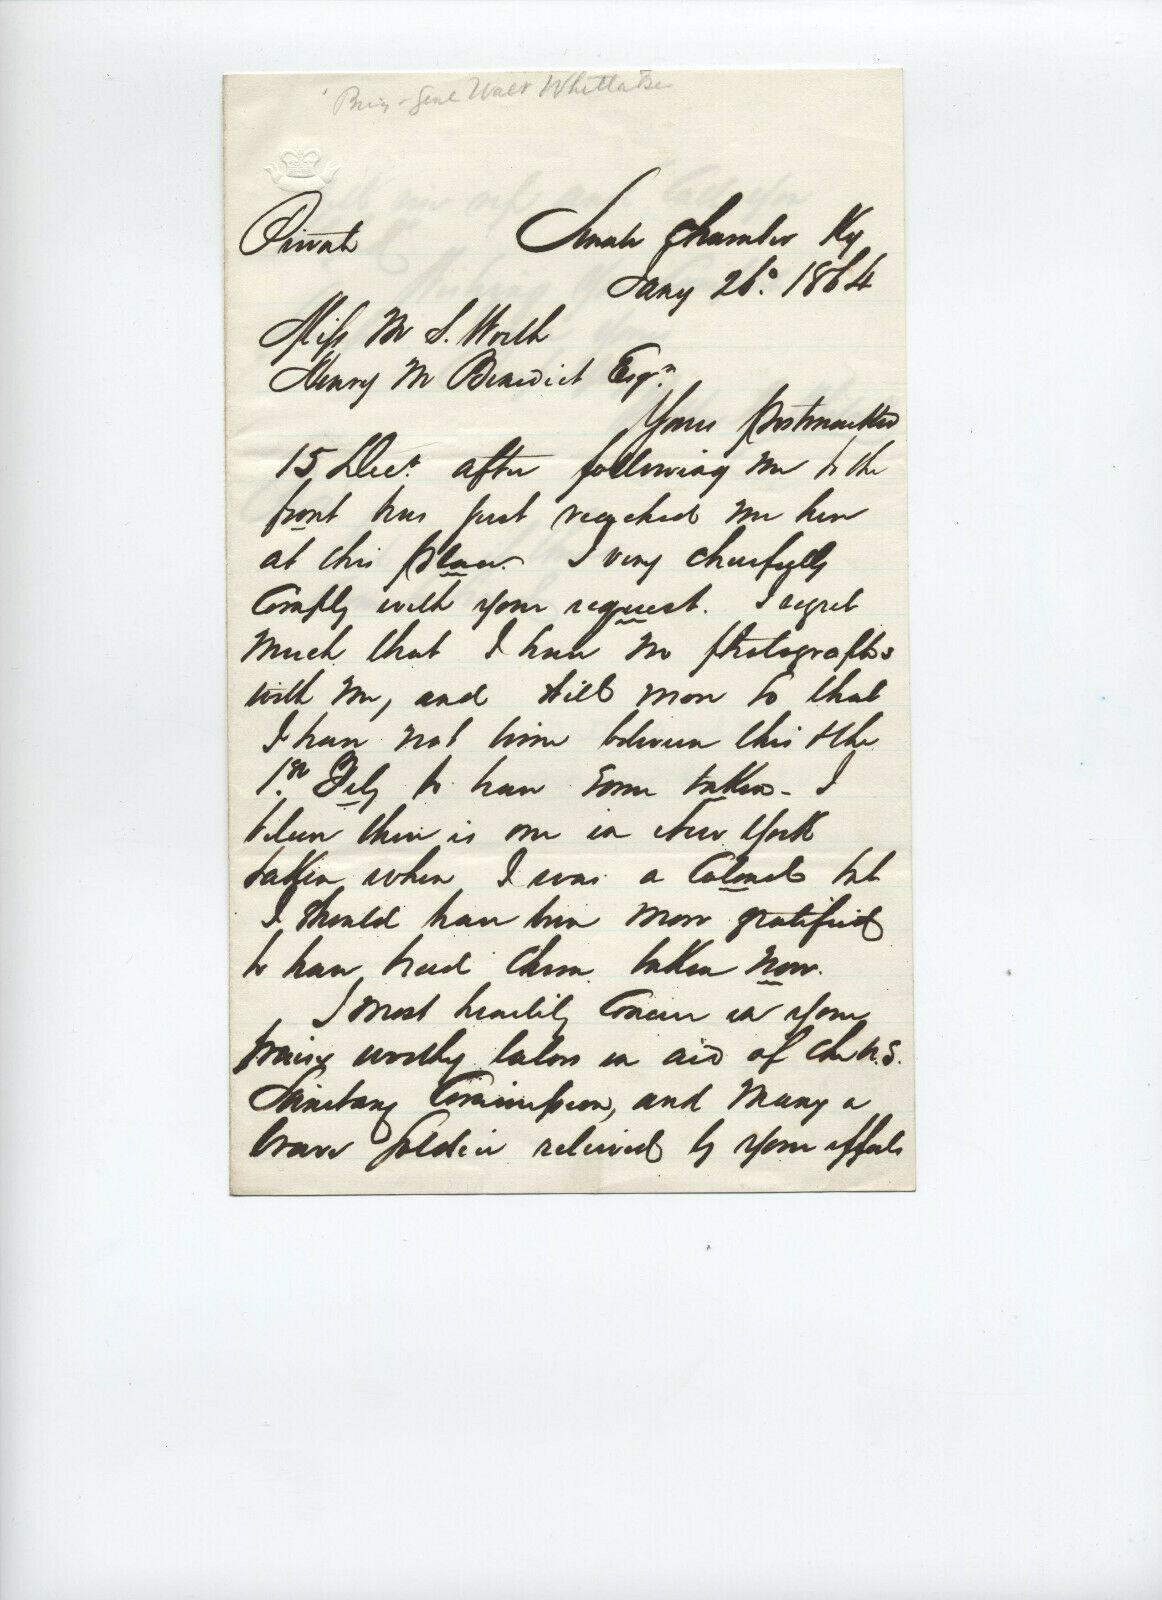 Brig-Genl Walt Whittaker
Private Senate Chamber Ky
Jany 26. 1864
Miss M S. Worth
Henry M Benedict Esqr.
Yours postmarked
15 Dec. after following me to the
front has just reached me here
at this place. I very cheerfully
comply with your request. I regret
much that I have no photographs
with me, and still more so that
I have not time between this & the
1st Feby to have some taken - I
believe there is one in New York
taken when I was a Colonel but
I should have been more gratified
to have had them taken now.
I most heartily concur in your
praise worthy labors in aid of the U.S.
Sanitary Commission, and many a
brave soldier relieved by your efforts